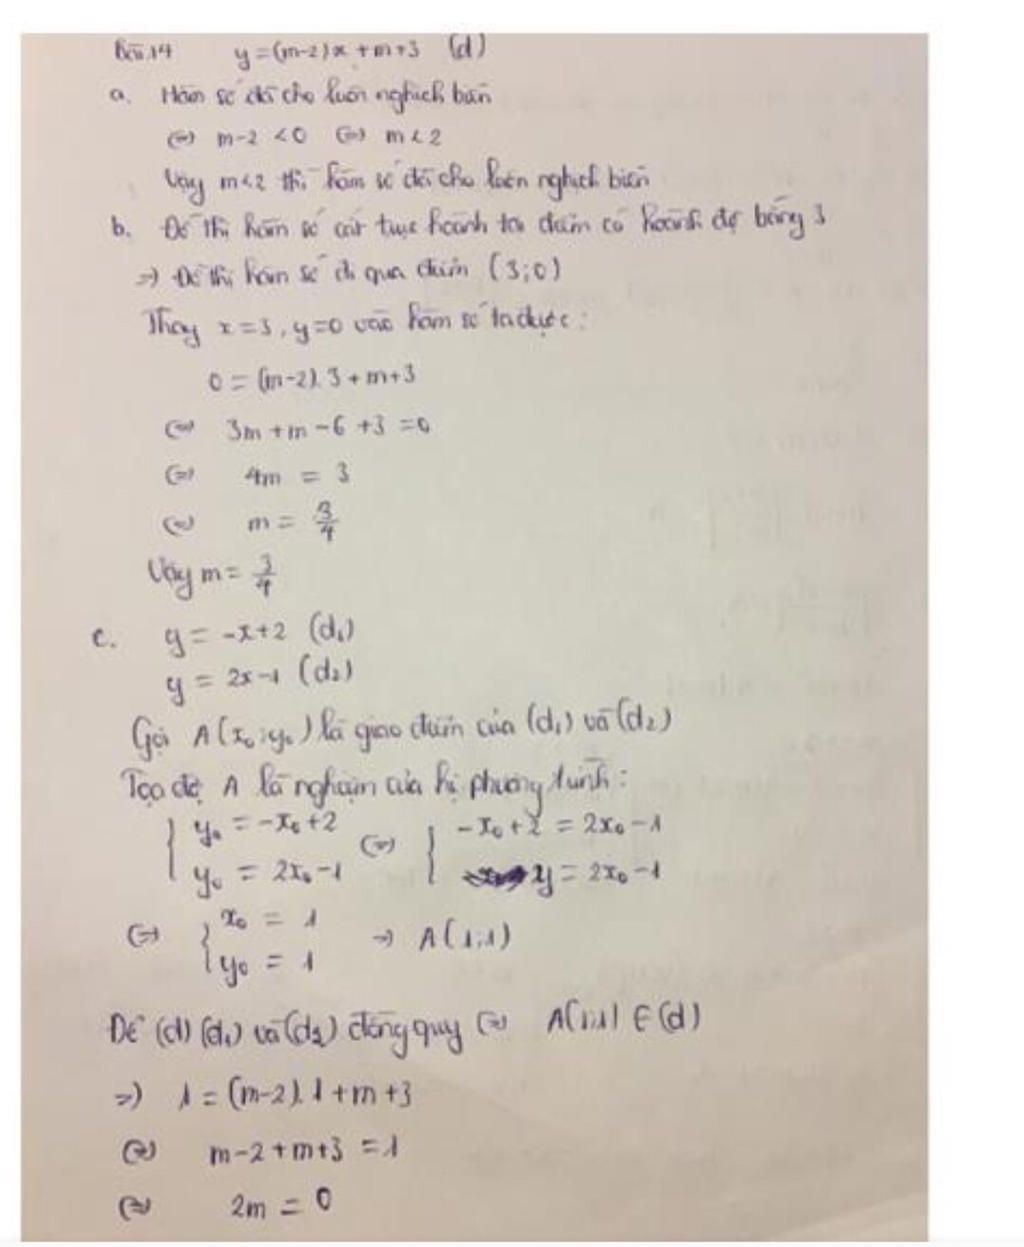 Bài 14 y = (m-2)x + m+3 (d)
a. Hàm số đã cho luôn nghịch biến
(=) m-2 < 0 (=) m < 2
Vậy m<2 thì hàm số đã cho luôn nghịch biến
b. Đồ thị hàm số cắt trục hoành tại điểm có hoành độ bằng 3
=) Đồ thị hàm số đi qua điểm (3;0)
Thay x=3, y=0 vào hàm số ta được:
0 = (m-2).3 + m+3
(=) 3m + m - 6 + 3 = 0
(=) 4m = 3
(=) m = 3/4
Vậy m = 3/4
c. y = -x+2 (d₁)
y = 2x-1 (d₂)
Gọi A(x₀;y₀) là giao điểm của (d₁) và (d₂)
Tọa độ A là nghiệm của hệ phương trình:
{ y₀ = -x₀+2 (=) { -x₀+2 = 2x₀-1
y₀ = 2x₀-1 y = 2x₀-1
(=) { x₀ = 1 =) A(1;1)
y₀ = 1
Để (d) (d₁) và (d₂) đồng quy (=) A(1;1) ∈ (d)
=) 1 = (m-2).1 + m+3
(=) m-2+m+3 = 1
(=) 2m = 0